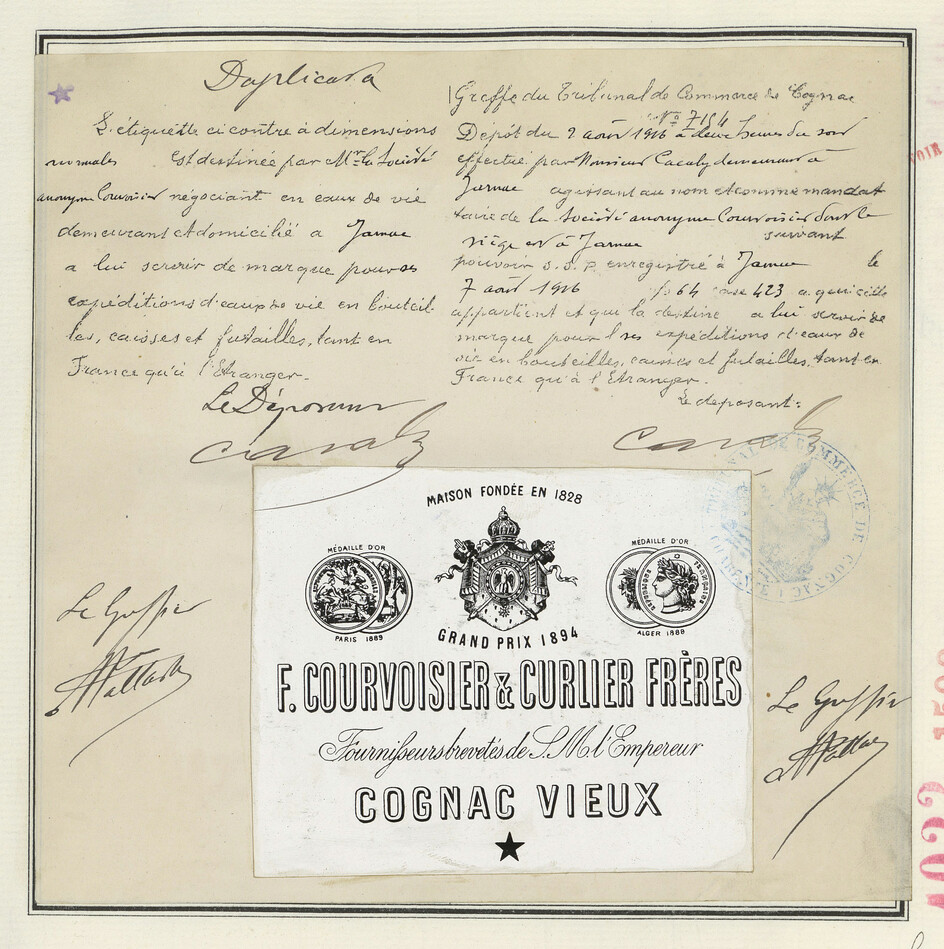 Duplicata
L'étiquette ci contre à dimensions
normales est destinée par Mr la Société
anonyme Courvoisier négociant en eaux de vie
demeurant et domicilié a Jarnac
a lui servir de marque pour ses
expéditions d'eaux de vie en bouteil
les, caisses et futailles, tant en
France qu'à l'Etranger.
Le Déposant
Greffe du Tribunal de Commerce de Cognac
No 7194
Dépôt du 2 août 1916 à deux heures du soir
effectué par Monsieur Cazaly demeurant à
Jarnac agissant au nom et comme mandat
taire de la Société anonyme Courvoisier dont le
siège est à Jarnac suivant
pouvoir s.s.p. enregistré à Jarnac le
7 août 1916 fo 64 case 423 a qui elle
appartient et que la destine a lui servir de
marque pour ses expéditions d'eaux de
vie en bouteilles, caisses et futailles, tant en
France qu'à l'Etranger.
Le deposant:
TRIBUNAL DE COMMERCE DE COGNAC
MAISON FONDÉE EN 1828
MÉDAILLE D'OR
PARIS 1889
GRAND PRIX 1894
MÉDAILLE D'OR
ALGER 1889
F. COURVOISIER & CURLIER FRÈRES
Fournisseurs brevetés de S. M. l'Empereur
COGNAC VIEUX
Le Greffier
Le Greffier